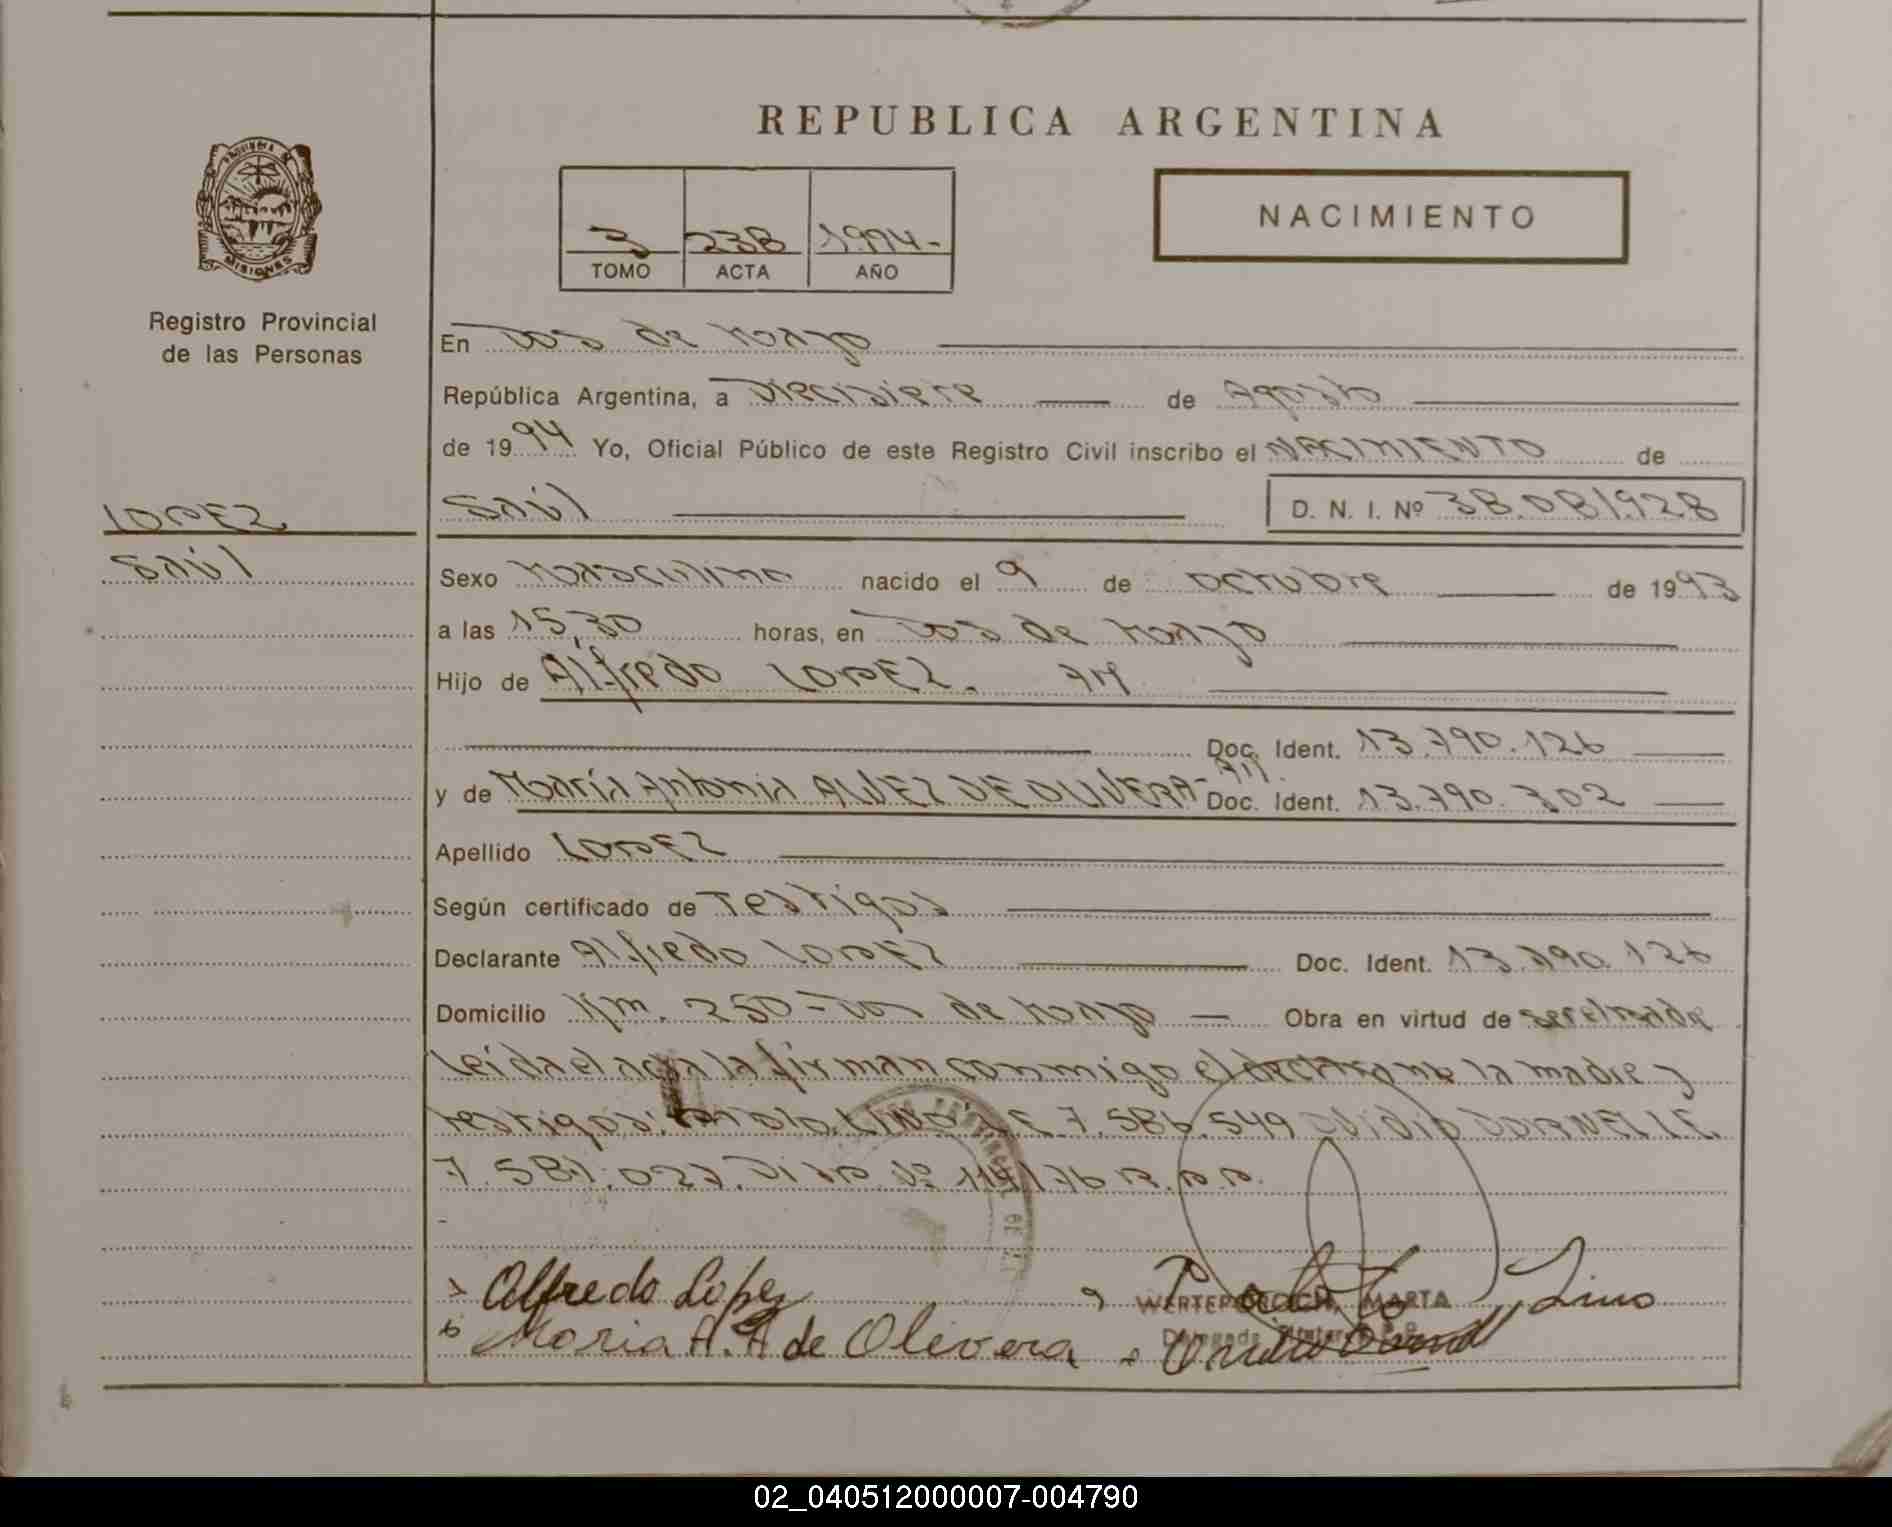 REPUBLICA ARGENTINA
PROVINCIA DE
MISIONES
Registro Provincial
de las Personas
3 238 1994.-
TOMO ACTA AÑO
NACIMIENTO
En Dos de Mayo
República Argentina, a Diecisiete de Agosto
de 1994 Yo, Oficial Público de este Registro Civil inscribo el NACIMIENTO de
LOPEZ
Saúl
Saúl D. N. I. Nº 38.081.928
Sexo Masculino nacido el 9 de octubre de 1993
a las 15,30 horas, en Dos de Mayo
Hijo de Alfredo LOPEZ.
Doc. Ident. 13.790.126
y de María Antonia ALVEZ DE OLIVERA- Doc. Ident. 13.790.302
Apellido LOPEZ
Según certificado de Testigos
Declarante Alfredo LOPEZ Doc. Ident. 13.790.126
Domicilio Km. 250-Dos de Mayo Obra en virtud de ser el padre
Leida el acta la firman conmigo el declarante la madre y
testigos: LINO 7.586.549 Ovidio DORNELLE.
7.587.027. Disp. Nº 114/76 R.P.P.
Alfredo Lopez
Maria A. A de Olivera
Lino
MARTA
02_040512000007-004790